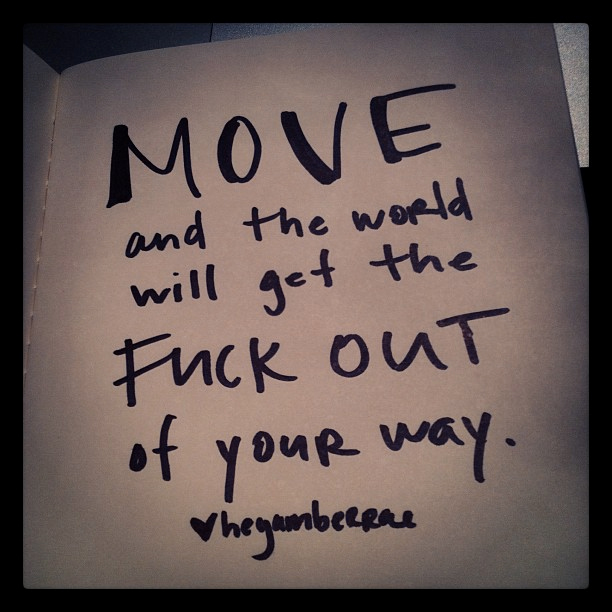 MOVE
and the world
will get the
FUCK OUT
of your way.
♥heyamberrae